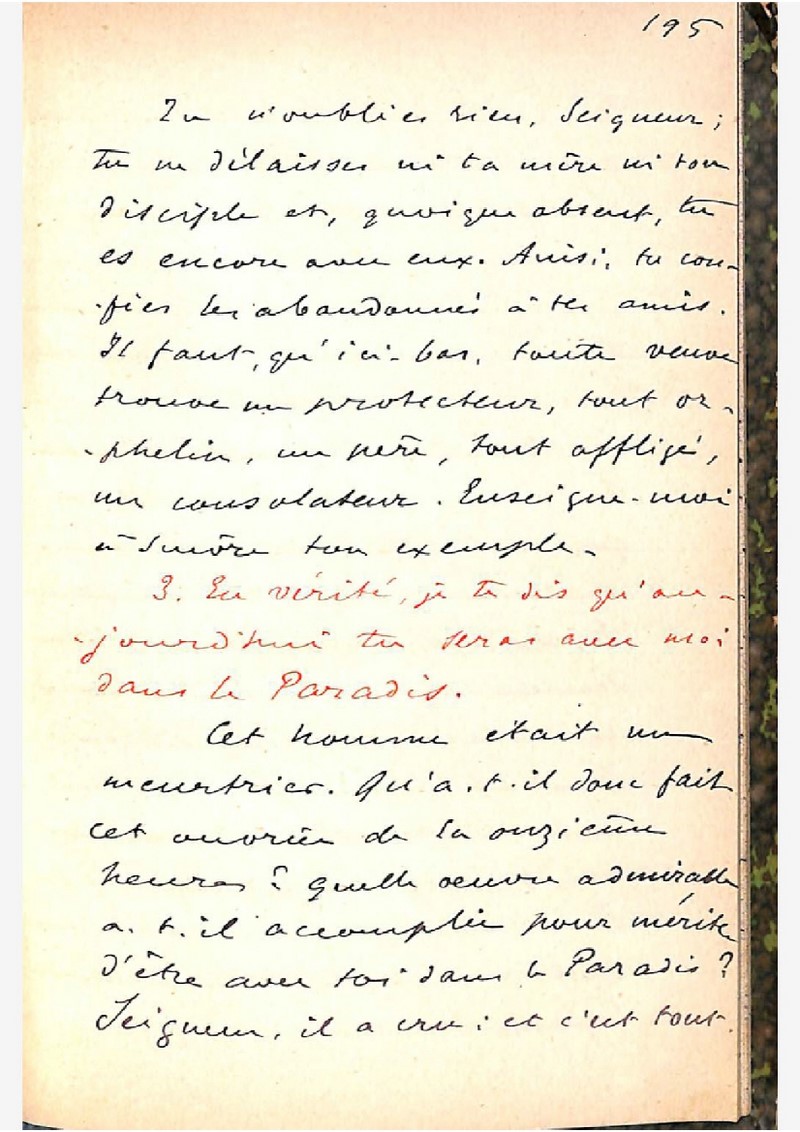 195
Tu n'oublies rien, Seigneur ;
tu ne délaisses ni ta mère ni ton
disciple et, quoique absent, tu
es encore avec eux. Ainsi, tu con-
-fies les abandonnés à tes amis.
Il faut, qu'ici-bas, toute veuve
trouve un protecteur, tout or-
-phelin, un père, tout affligé,
un consolateur. Enseigne-moi
à suivre ton exemple.
3. En vérité, je te dis qu'au-
-jourd'hui tu seras avec moi
dans le Paradis.
Cet homme était un
meurtrier. Qu'a-t-il donc fait
cet ouvrier de la onzième
heure ? quelle oeuvre admirable
a-t-il accomplie pour mériter
d'être avec toi dans le Paradis ?
Seigneur, il a cru : et c'est tout.